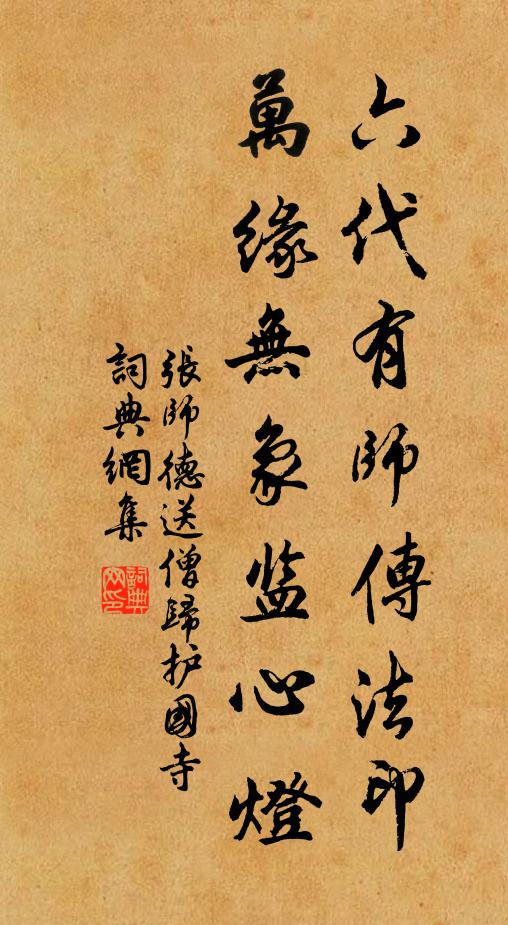 六代有師傳法印
萬緣無象监心燈
張師德送僧歸护國寺
詞典網集
詞典網印